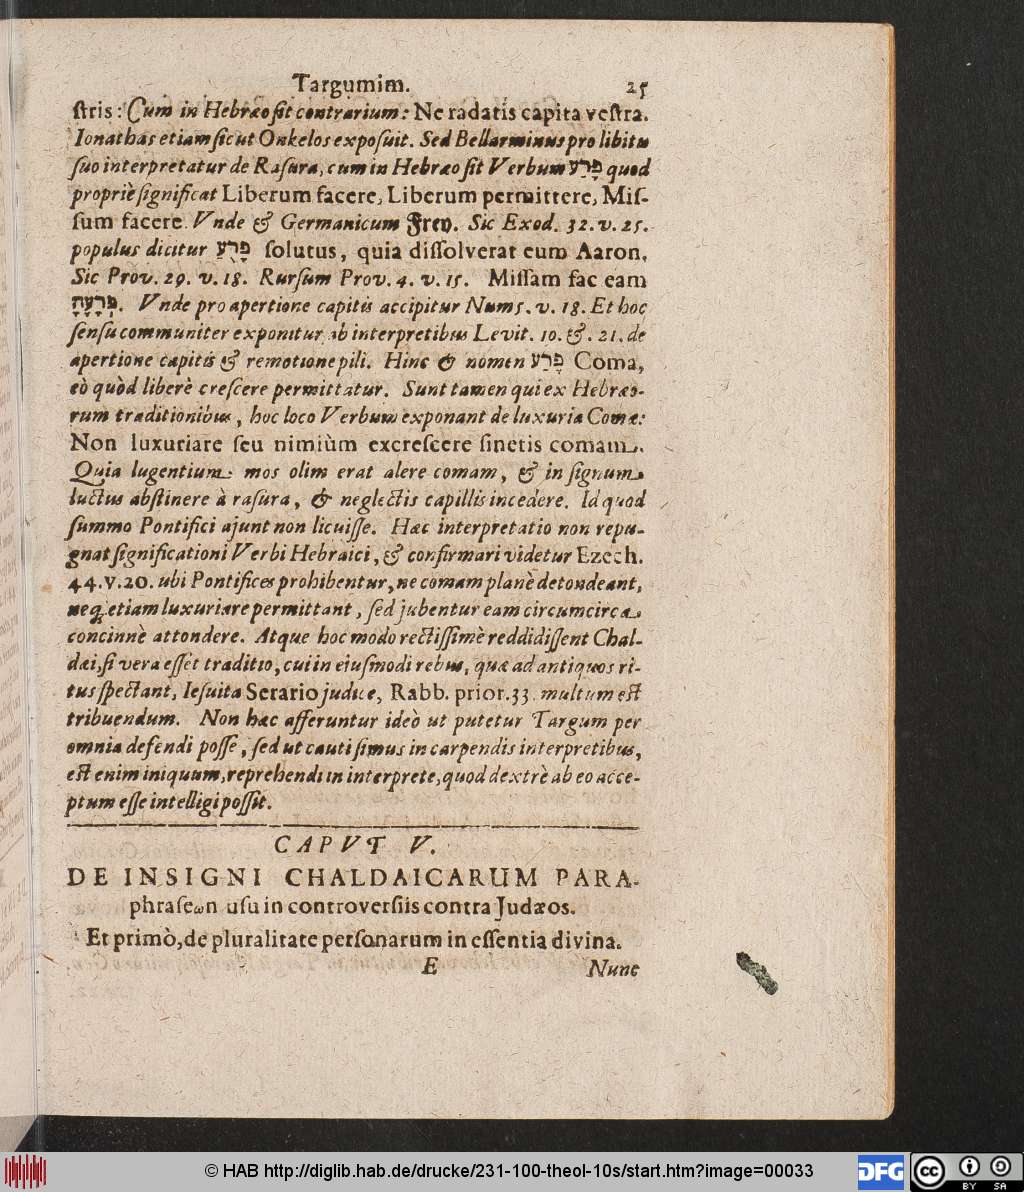 Targumim. 25
ſtris: Cum in Hebræo ſit contrarium: Ne radatis capita veſtra.
Ionathas etiam ſicut Onkelos expoſuit. Sed Bellarminus pro libitu
ſuo interpretatur de Raſura, cum in Hebræo ſit Verbum פָּרַע quod
propriè ſignificat Liberum facere, Liberum permittere, Miſ-
ſum facere Vnde & Germanicum Frey. Sic Exod. 32. v. 25.
populus dicitur פָּרֻעַ ſolutus, quia diſſolverat eum Aaron.
Sic Prov. 29. v. 18. Rurſum Prov. 4. v. 15. Miſſam fac eam
פְּרָעָהָ. Vnde pro apertione capitis accipitur Num 5. v. 18. Et hoc
ſenſu communiter exponitur ab interpretibus Levit. 10. &. 21. de
apertione capitis & remotione pili. Hinc & nomen פֶּרַע Coma,
eò quòd liberè creſcere permittatur. Sunt tamen qui ex Hebræo-
rum traditionibus, hoc loco Verbum exponant de luxuria Comæ:
Non luxuriare ſeu nimiùm excreſcere ſinetis comam.
Quia lugentium mos olim erat alere comam, & in ſignum
luctus abſtinere à raſura, & neglectis capillis incedere. Id quod
ſummo Pontifici ajunt non licuiſſe. Hæc interpretatio non repu-
gnat ſignificationi Verbi Hebraici, & confirmari videtur Ezech.
44. v. 20. ubi Pontifices prohibentur, ne comam planè detondeant,
neq; etiam luxuriare permittant, ſed jubentur eam circumcirca
concinnè attondere. Atque hoc modo rectiſſimè reddidiſſent Chal-
dæi, ſi vera eſſet traditio, cui in eiuſmodi rebus, quæ ad antiquos ri-
tus ſpectant, Ieſuita Serario judice, Rabb. prior. 33. multum eſt
tribuendum. Non hæc afferuntur ideò ut putetur Targum per
omnia defendi poſſe, ſed ut cauti ſimus in carpendis interpretibus,
eſt enim iniquum, reprehendi in interprete, quod dextrè ab eo acce-
ptum eſſe intelligi poſſit.
CAPVT V.
DE INSIGNI CHALDAICARUM PARA-
phraſeωn uſu in controverſiis contra Judæos.
Et primò, de pluralitate perſonarum in eſſentia divina.
E Nunc
© HAB http://diglib.hab.de/drucke/231-100-theol-10s/start.htm?image=00033
DFG
cc BY SA